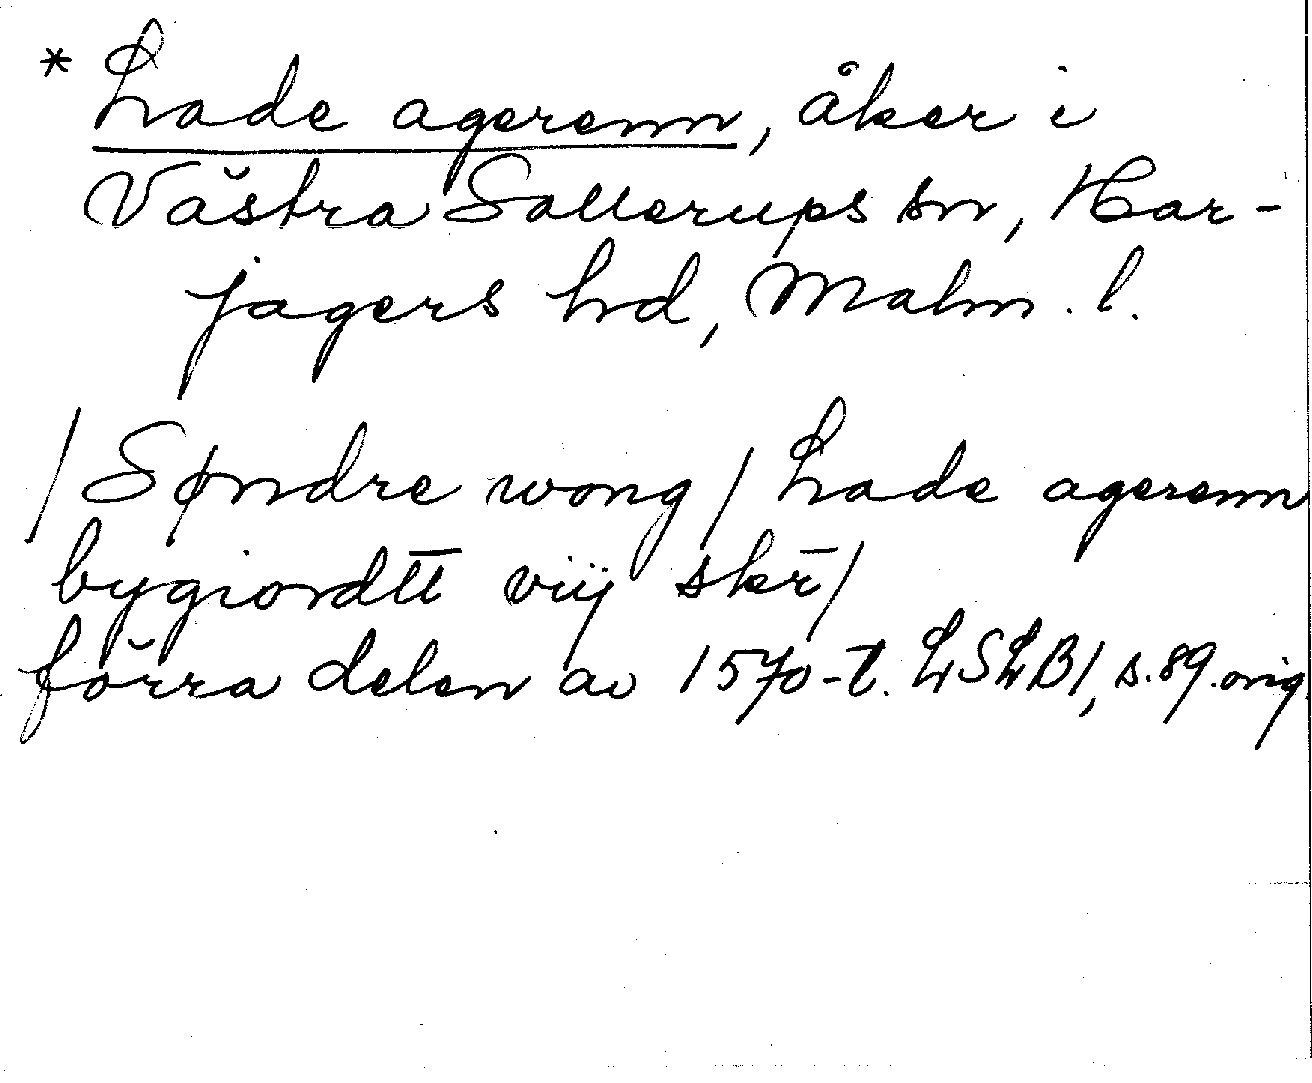 * Lade agerenn, åker i
Västra Sallerups sn, Har-
jagers hd, Malm. l.
/Søndre wong/ Lade agerenn
bygiordtt viij skr̄/
förra delen av 1570-t. LSLB1, s.89.orig